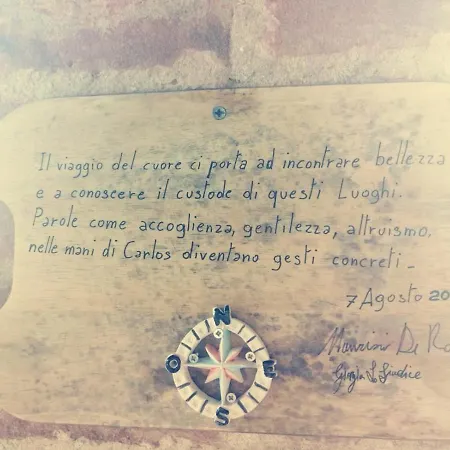 Il viaggio del cuore ci porta ad incontrare bellezza
e a conoscere il custode di questi Luoghi.
Parole come accoglienza, gentilezza, altruismo,
nelle mani di Carlos diventano gesti concreti.
7 Agosto 20
De
N
O E
S